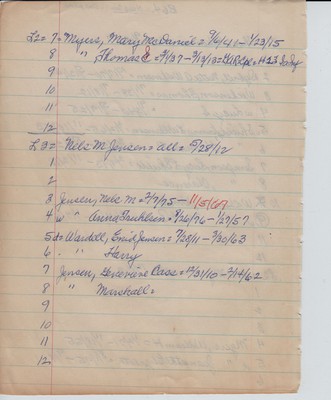 L2 = 7 = Myers, Mary McDaniel = 3/6/41 - 1/23/15
8 " Thomas
9
11
12
L 13 = Nels M Jensen = all = 5/28/12
1
2
3 Jensen, Nels M = 2/7/75 - 11/5/67
4 w " Anna = 9/26/76 - 1/27/57
5 d = Wardell, Enid Jensen = 7/28/11 - 3/30/63
6 . " Harry
7 Jensen, Genevieve Case = 12/31/10 - 2/14/62
8 " Marshall =
9
10
11
12